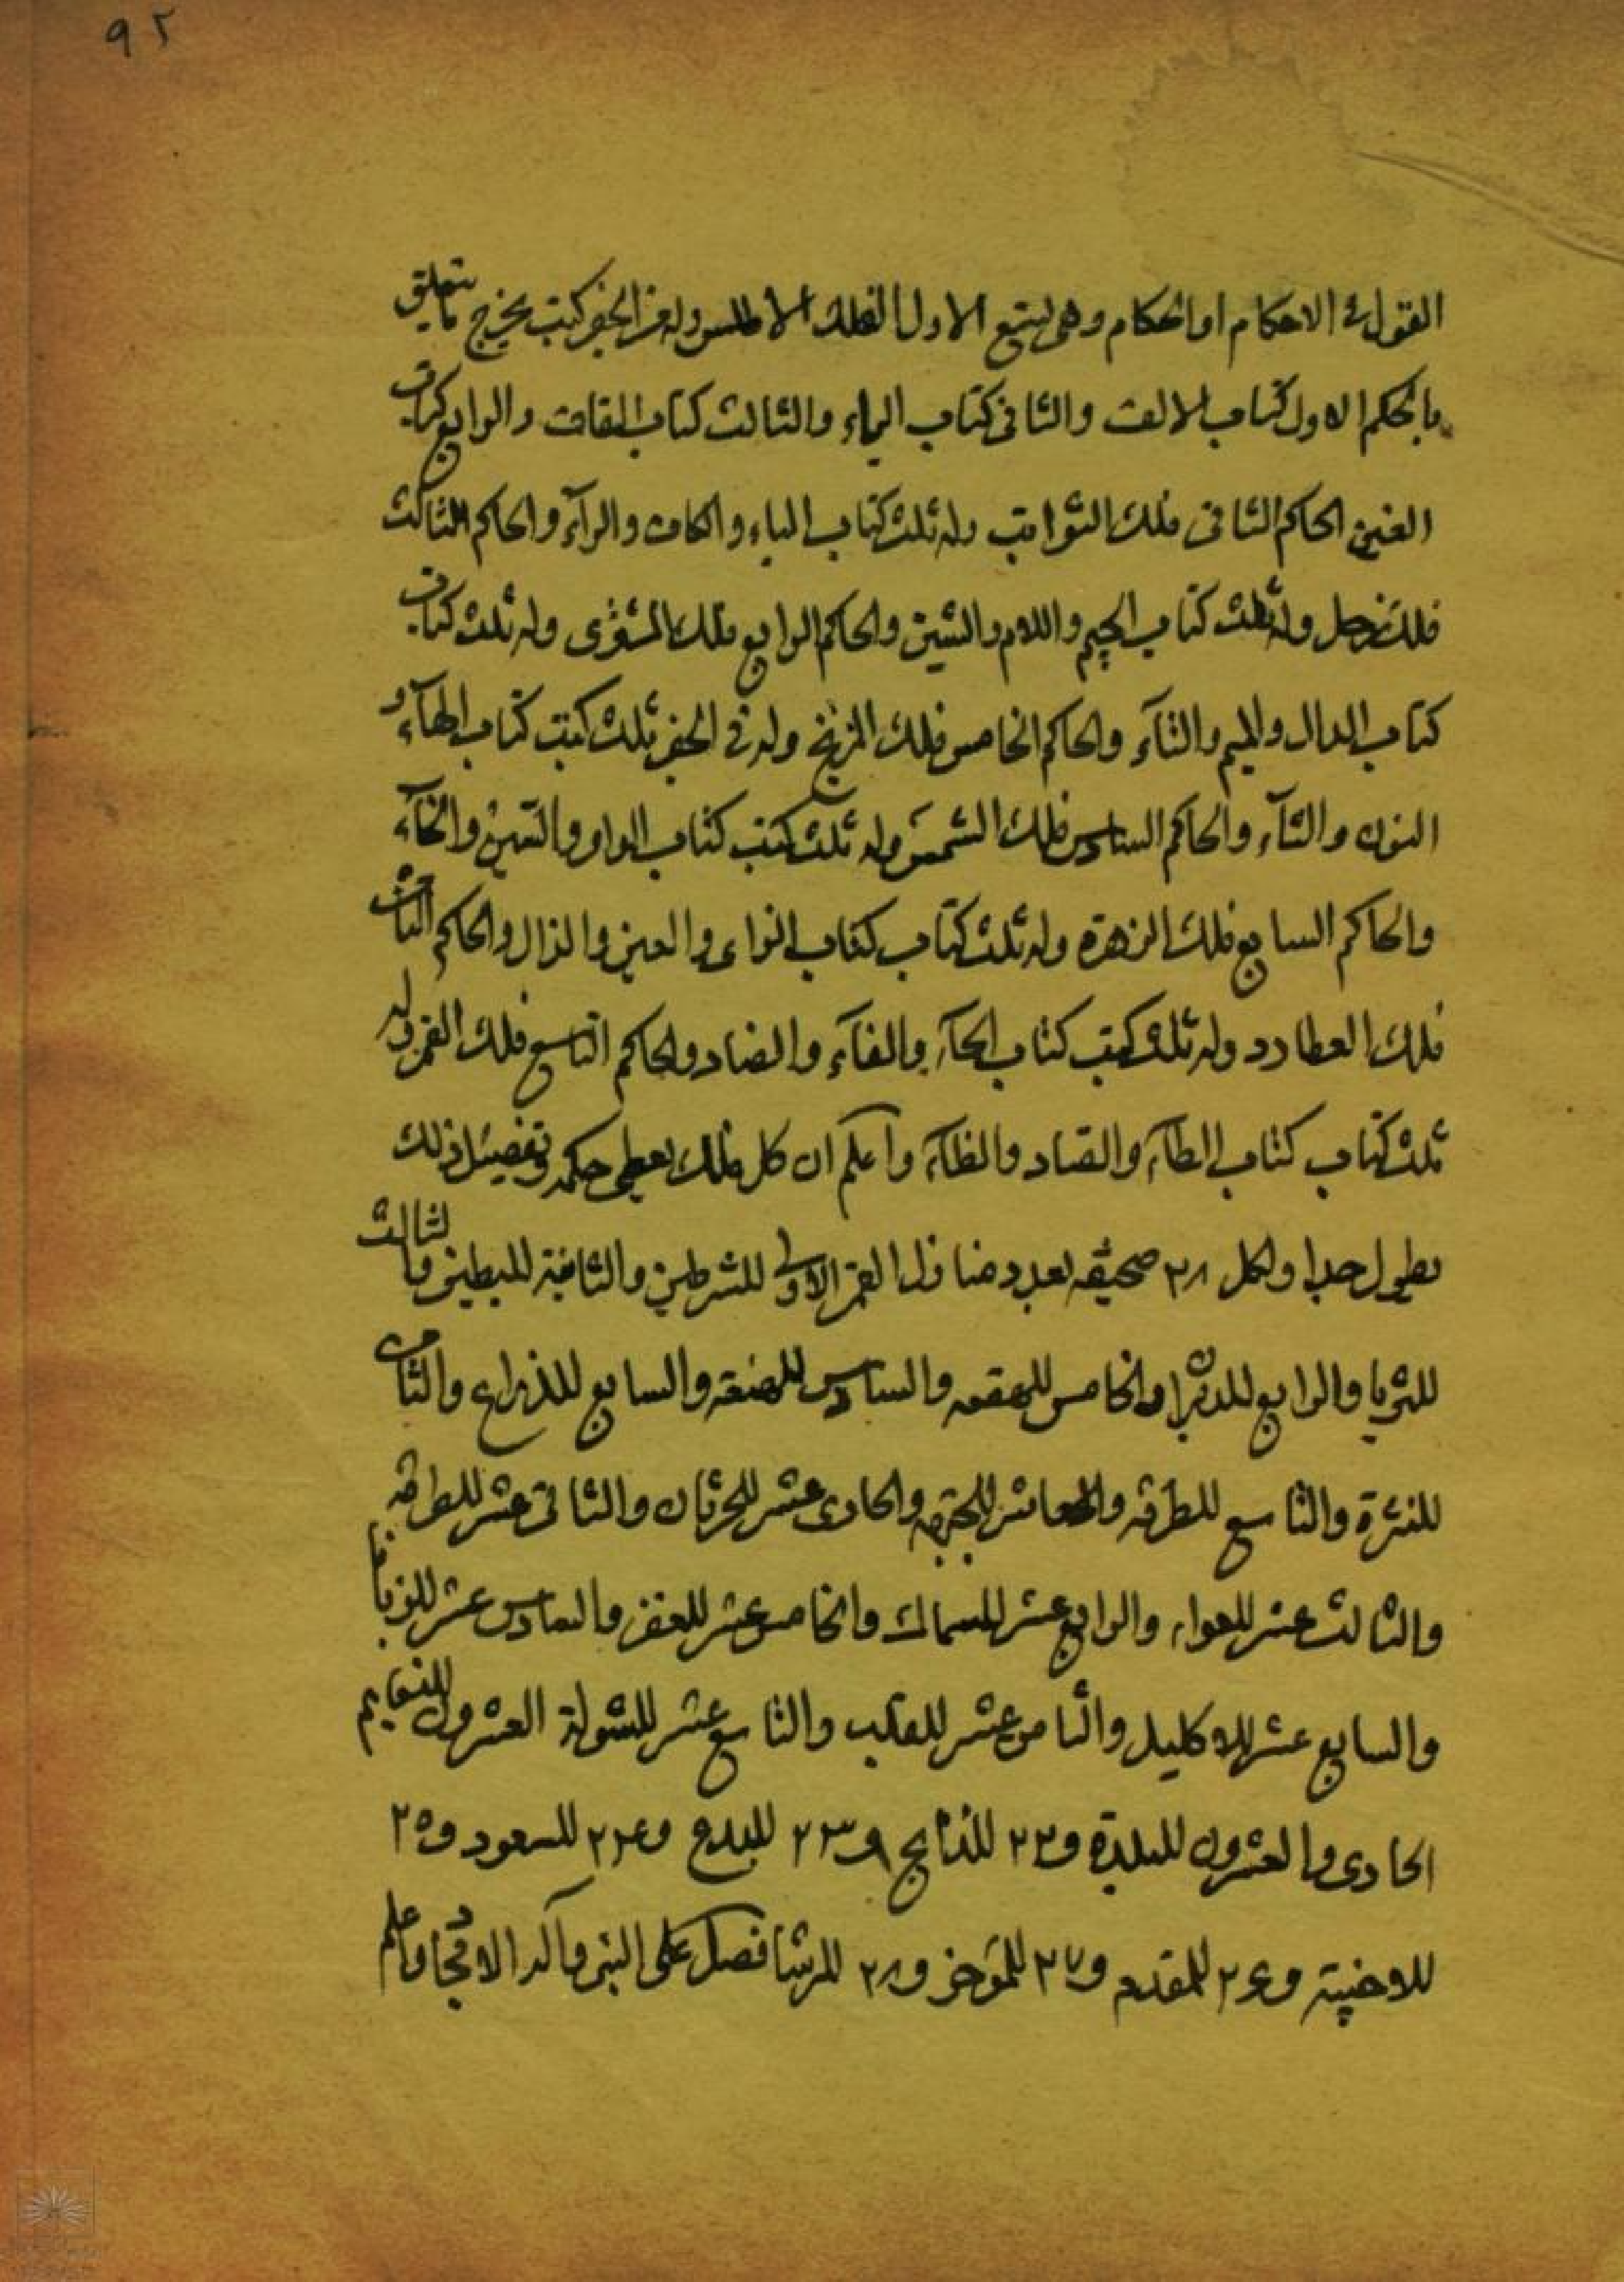 ٩٢
القول فى الاحكام او الحكام وهى لتسع الاول الفلك الاطلس وله من الجفر كتب يخرج ما يتعلق
بالحكم الاول كتاب الالف والثانى كتاب الياء والثالث كتاب القاف والرابع كتاب
الغين الحاكم الثانى فلك الثوابت وله ثلث كتاب الباء والكاف والرآء والحاكم الثالث
فلك زحل وله ثلث كتاب الجيم واللام والشين والحاكم الرابع فلك المشترى وله ثلث كتاب
كتاب الدال والميم والتآء والحاكم الخامس فلك المريخ وله فى الجفر ثلث كتب كتاب الهآء و
النون والثآء والحاكم السادس فلك الشمس وله ثلث كتب كتاب الواو والسين والخآء
والحاكم السابع فلك الزهرة وله ثلث كتاب كتاب الزاى والعين والذال والحاكم الثامن
فلك العطارد وله ثلث كتب كتاب الحآء والفآء والضاد والحاكم التاسع فلك القمر وله
ثلث كتاب كتاب الطآء والصاد والظآء واعلم ان كل فلك يعطى حكمه وتفصيل ذلك
يطول جدا ولكل ٢٨ صحيفه بعدد منازل القمر الاولى للشرطين والثانية للبطين والثالث
للثريا والرابع للدبران والخامس للهقعه والسادس للهنعه والسابع للذراع والثامن
للنثرة والتاسع للطرفه والعاشر للجبهه والحادى عشر للخرثان والثانى عشر للطرفه
والثالث عشر للعواء والرابع عشر للسماك والخامس عشر للغفر والسادس عشر للزبانا
والسابع عشر للاكليل والثامن عشر للقلب والتاسع عشر للشولة العشرون للنعايم
الحادى والعشرون للبلدة و٢٢ للذابح و٢٣ للبلع و٢٤ للسعود و٢٥
للاخبيته و٢٦ للمقدم و٢٧ للمؤخر و٢٨ للرشا فصل على النبى وآله الامجاد واعلم